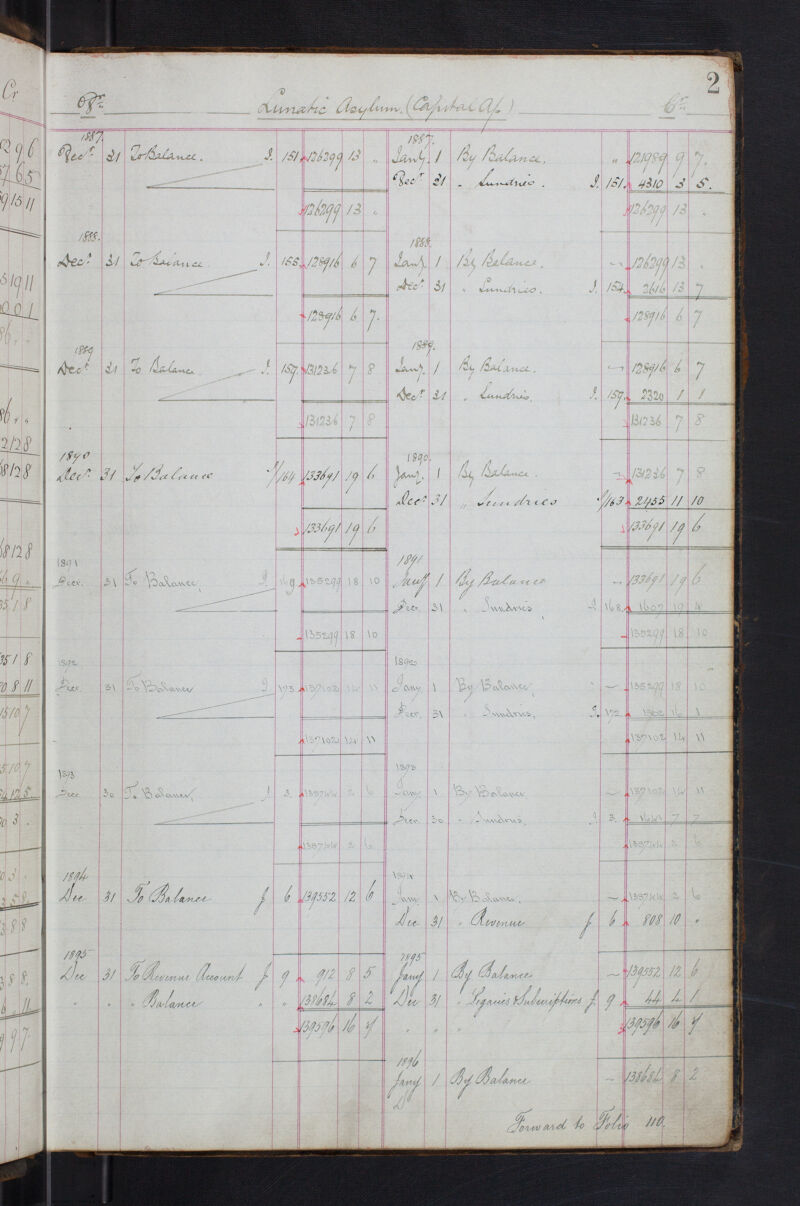 2
Dr. Lunatic Asylum. (Capital A/c) Cr.
1887. 1887.
Decr. 31 To Balance. J. 151 126299 13 " Jany. 1 By Balance. " 121989 9 7.
Decr 31 " Sundries. J. 151. 4310 3 5.
126299 13 " 126299 13 "
1888. 1888.
Decr. 31 To Balance. J. 155 128916 6 7 Jany. 1 By Balance. 126299 13 "
Decr. 31 " Sundries. J. 154 2616 13 7
128916 6 7. 128916 6 7
1889 1889.
Decr 31 To Balance J. 157. 131236 7 8 Jany. 1 By Balance. 128916 6 7
Decr. 31 " Sundries. J. 157. 2320 1 1
131236 7 8 131236 7 8
1890 1890.
Decr. 31 To Balance J/164 133691 19 6 Jany. 1 By Balance. 131236 7 8
Decr 31 " Sundries J/163 2455 11 10
133691 19 6 133691 19 6
1891 1891
Decr. 31 To Balance, J 169 135299 18 10 Jany 1 By Balance 133691 19 6
Decr 31 " Sundries, J 168 1607 19 4
135299 18 10 135299 18 10
1892 1892
Decr. 31 To Balance J 173 137102 14 11 Jany 1 By Balance, 135299 18 10
Decr. 31 " Sundries, J. 172 1802 16 1
137102 14 11 137102 14 11
1893 1893
Decr 30 To Balance, J 2 138744 2 6 Jany 1 By Balance 137102 14 11
Decr 30 " Sundries. J 2 1641 7 7
138744 2 6 138744 2 6
1894 1894
Dec 31 To Balance J 6 139552 12 6 Jany 1 By Balance. 138744 2 6
Dec 31 " Revenue J 6 808 10 "
1895 1895
Dec 31 To Revenue Account J 9 912 8 5 Jany 1 By Balance 139552 12 6
" " " Balance " " 138684 8 2 Dec 31 " Legacies & Subscriptions J 9 44 4 1
139596 16 7 " " " 139596 16 7
1896
Jany 1 By Balance 138684 8 2
Forward to Folio 110.